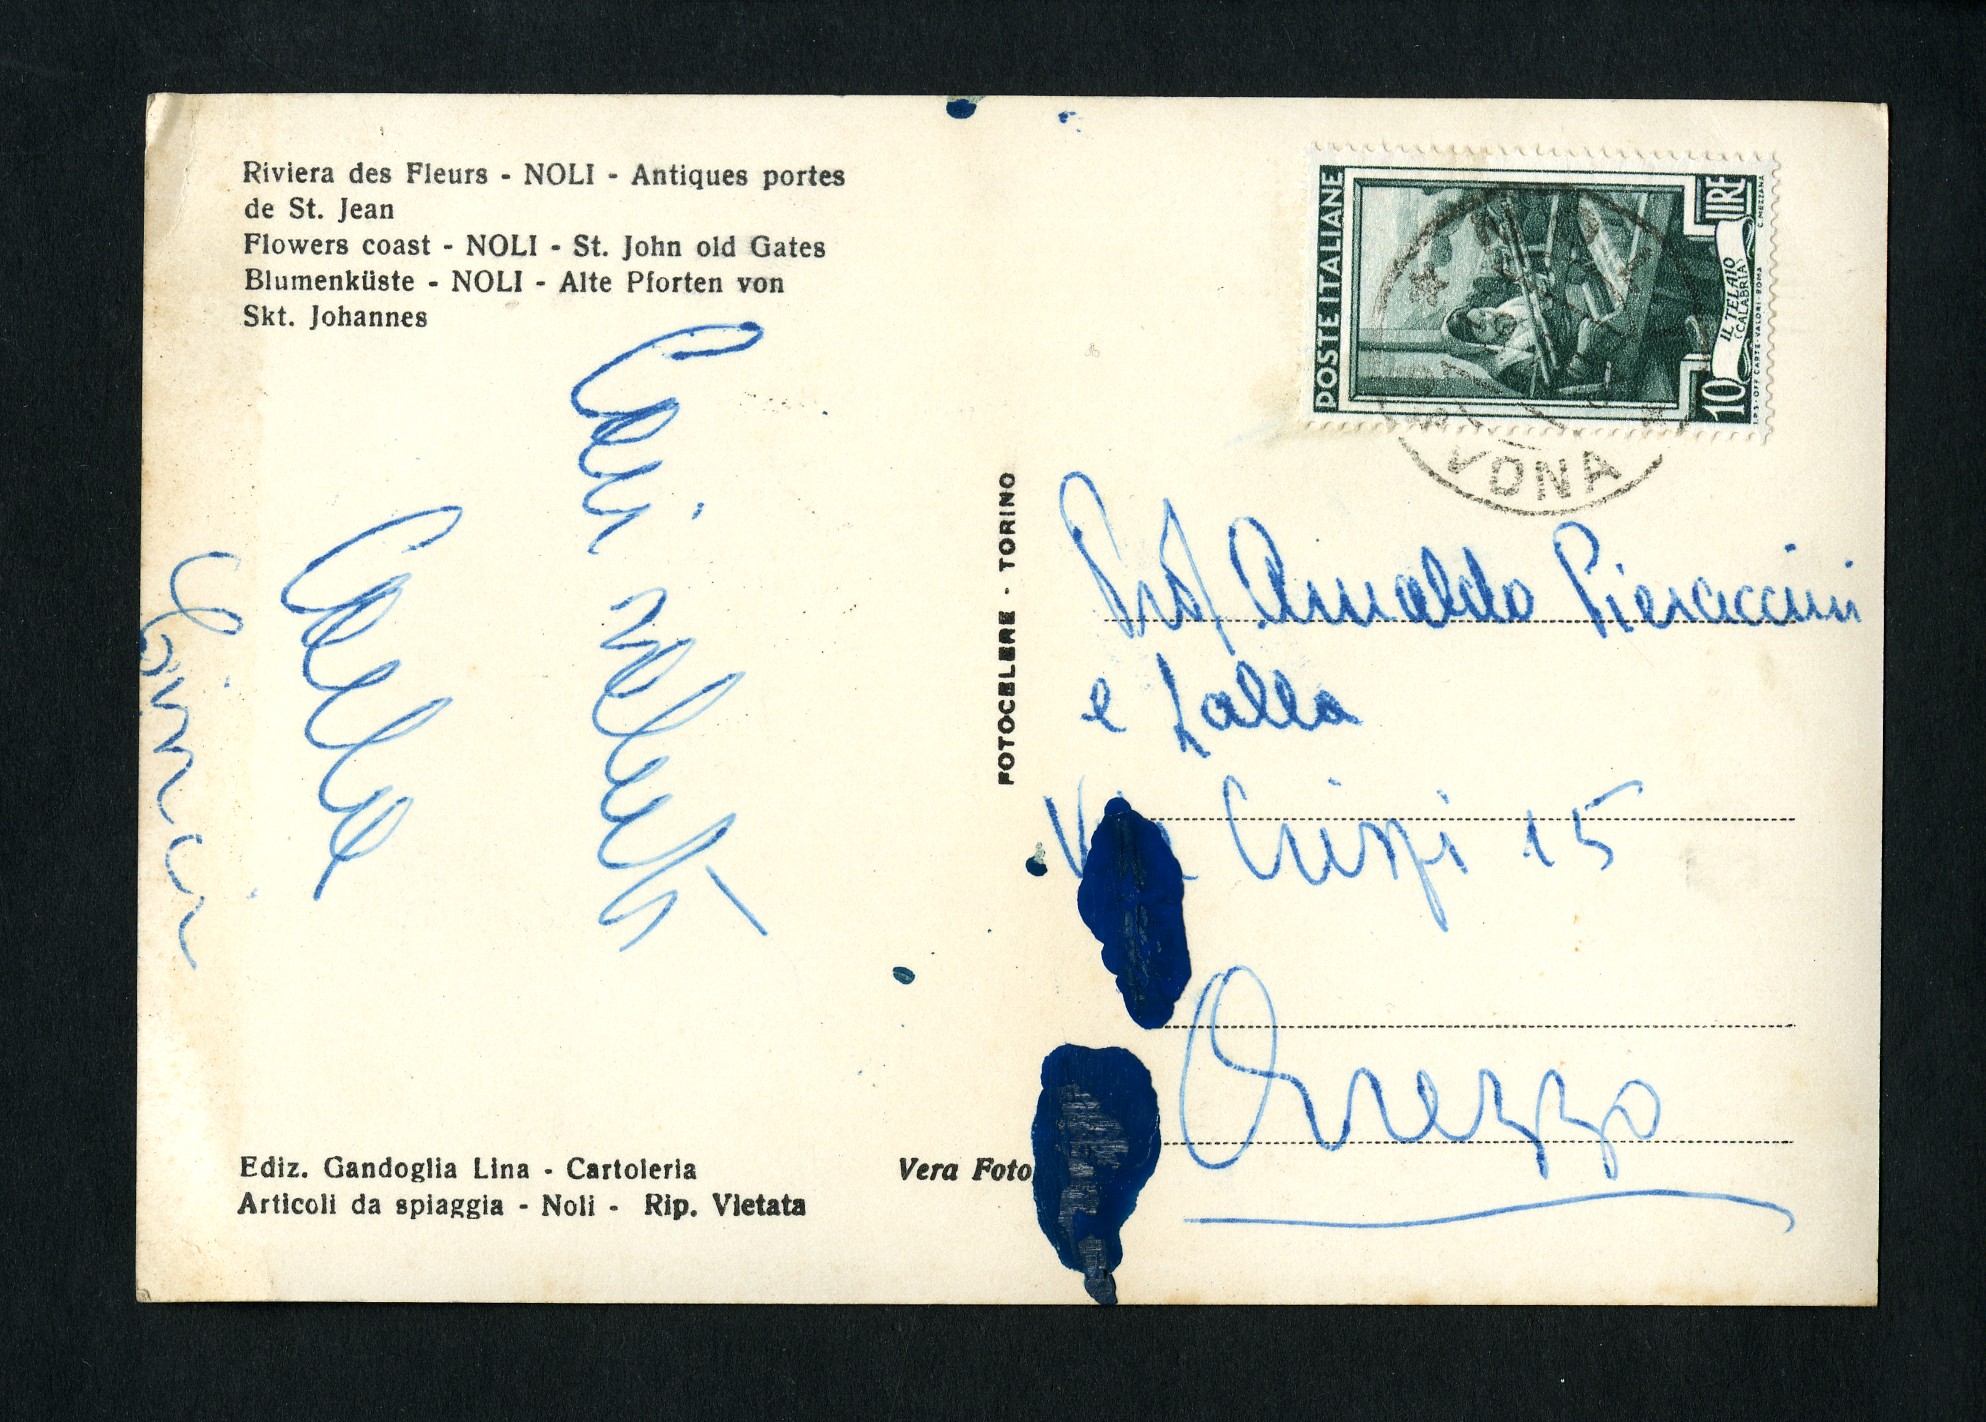 Riviera des Fleurs - NOLI - Antiques portes
de St. Jean
Flowers coast - NOLI - St. John old Gates
Blumenküste - NOLI - Alte Pforten von
Skt. Johannes
Cari saluti
Ediz. Gandoglia Lina - Cartoleria
Articoli da spiaggia - Noli - Rip. Vietata
Vera Foto
FOTOCELERE - TORINO
POSTE ITALIANE
LIRE
10
IL TELAIO
(CALABRIA)
I.P.S. OFF. CARTE-VALORI-ROMA
C. MEZZANA
VONA
Prof Arnaldo Pieraccini
e Lalla
Via Crispi 15
Arezzo